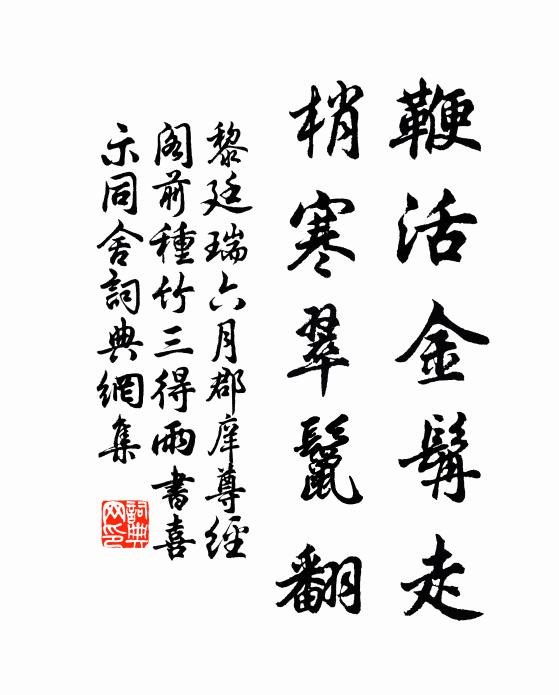 鞭活金髯走
梢寒翠鬣翻
黎廷瑞六月郡庠尊經
閣前種竹三得雨書喜
示同舍詞典網集
詞典
网印